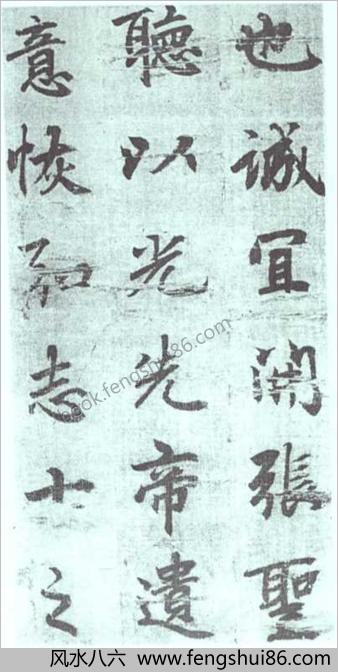 也誠宜開張聖
聽以光先帝遺
意恢弘志士之
book.fengshui86.com
风水八六 www.fengshui86.com